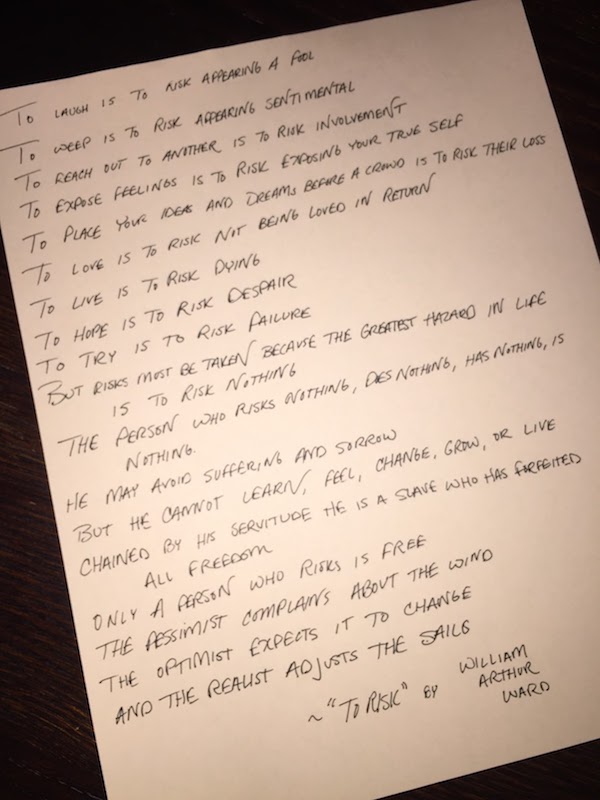 TO LAUGH IS TO RISK APPEARING A FOOL
TO WEEP IS TO RISK APPEARING SENTIMENTAL
TO REACH OUT TO ANOTHER IS TO RISK INVOLVEMENT
TO EXPOSE FEELINGS IS TO RISK EXPOSING YOUR TRUE SELF
TO PLACE YOUR IDEAS AND DREAMS BEFORE A CROWD IS TO RISK THEIR LOSS
TO LOVE IS TO RISK NOT BEING LOVED IN RETURN
TO LIVE IS TO RISK DYING
TO HOPE IS TO RISK DESPAIR
TO TRY IS TO RISK FAILURE
BUT RISKS MUST BE TAKEN BECAUSE THE GREATEST HAZARD IN LIFE
IS TO RISK NOTHING
THE PERSON WHO RISKS NOTHING, DOES NOTHING, HAS NOTHING, IS
NOTHING.
HE MAY AVOID SUFFERING AND SORROW
BUT HE CANNOT LEARN, FEEL, CHANGE, GROW, OR LIVE
CHAINED BY HIS SERVITUDE HE IS A SLAVE WHO HAS FORFEITED
ALL FREEDOM
ONLY A PERSON WHO RISKS IS FREE
THE PESSIMIST COMPLAINS ABOUT THE WIND
THE OPTIMIST EXPECTS IT TO CHANGE
AND THE REALIST ADJUSTS THE SAILS
~ "TO RISK" BY WILLIAM
ARTHUR
WARD